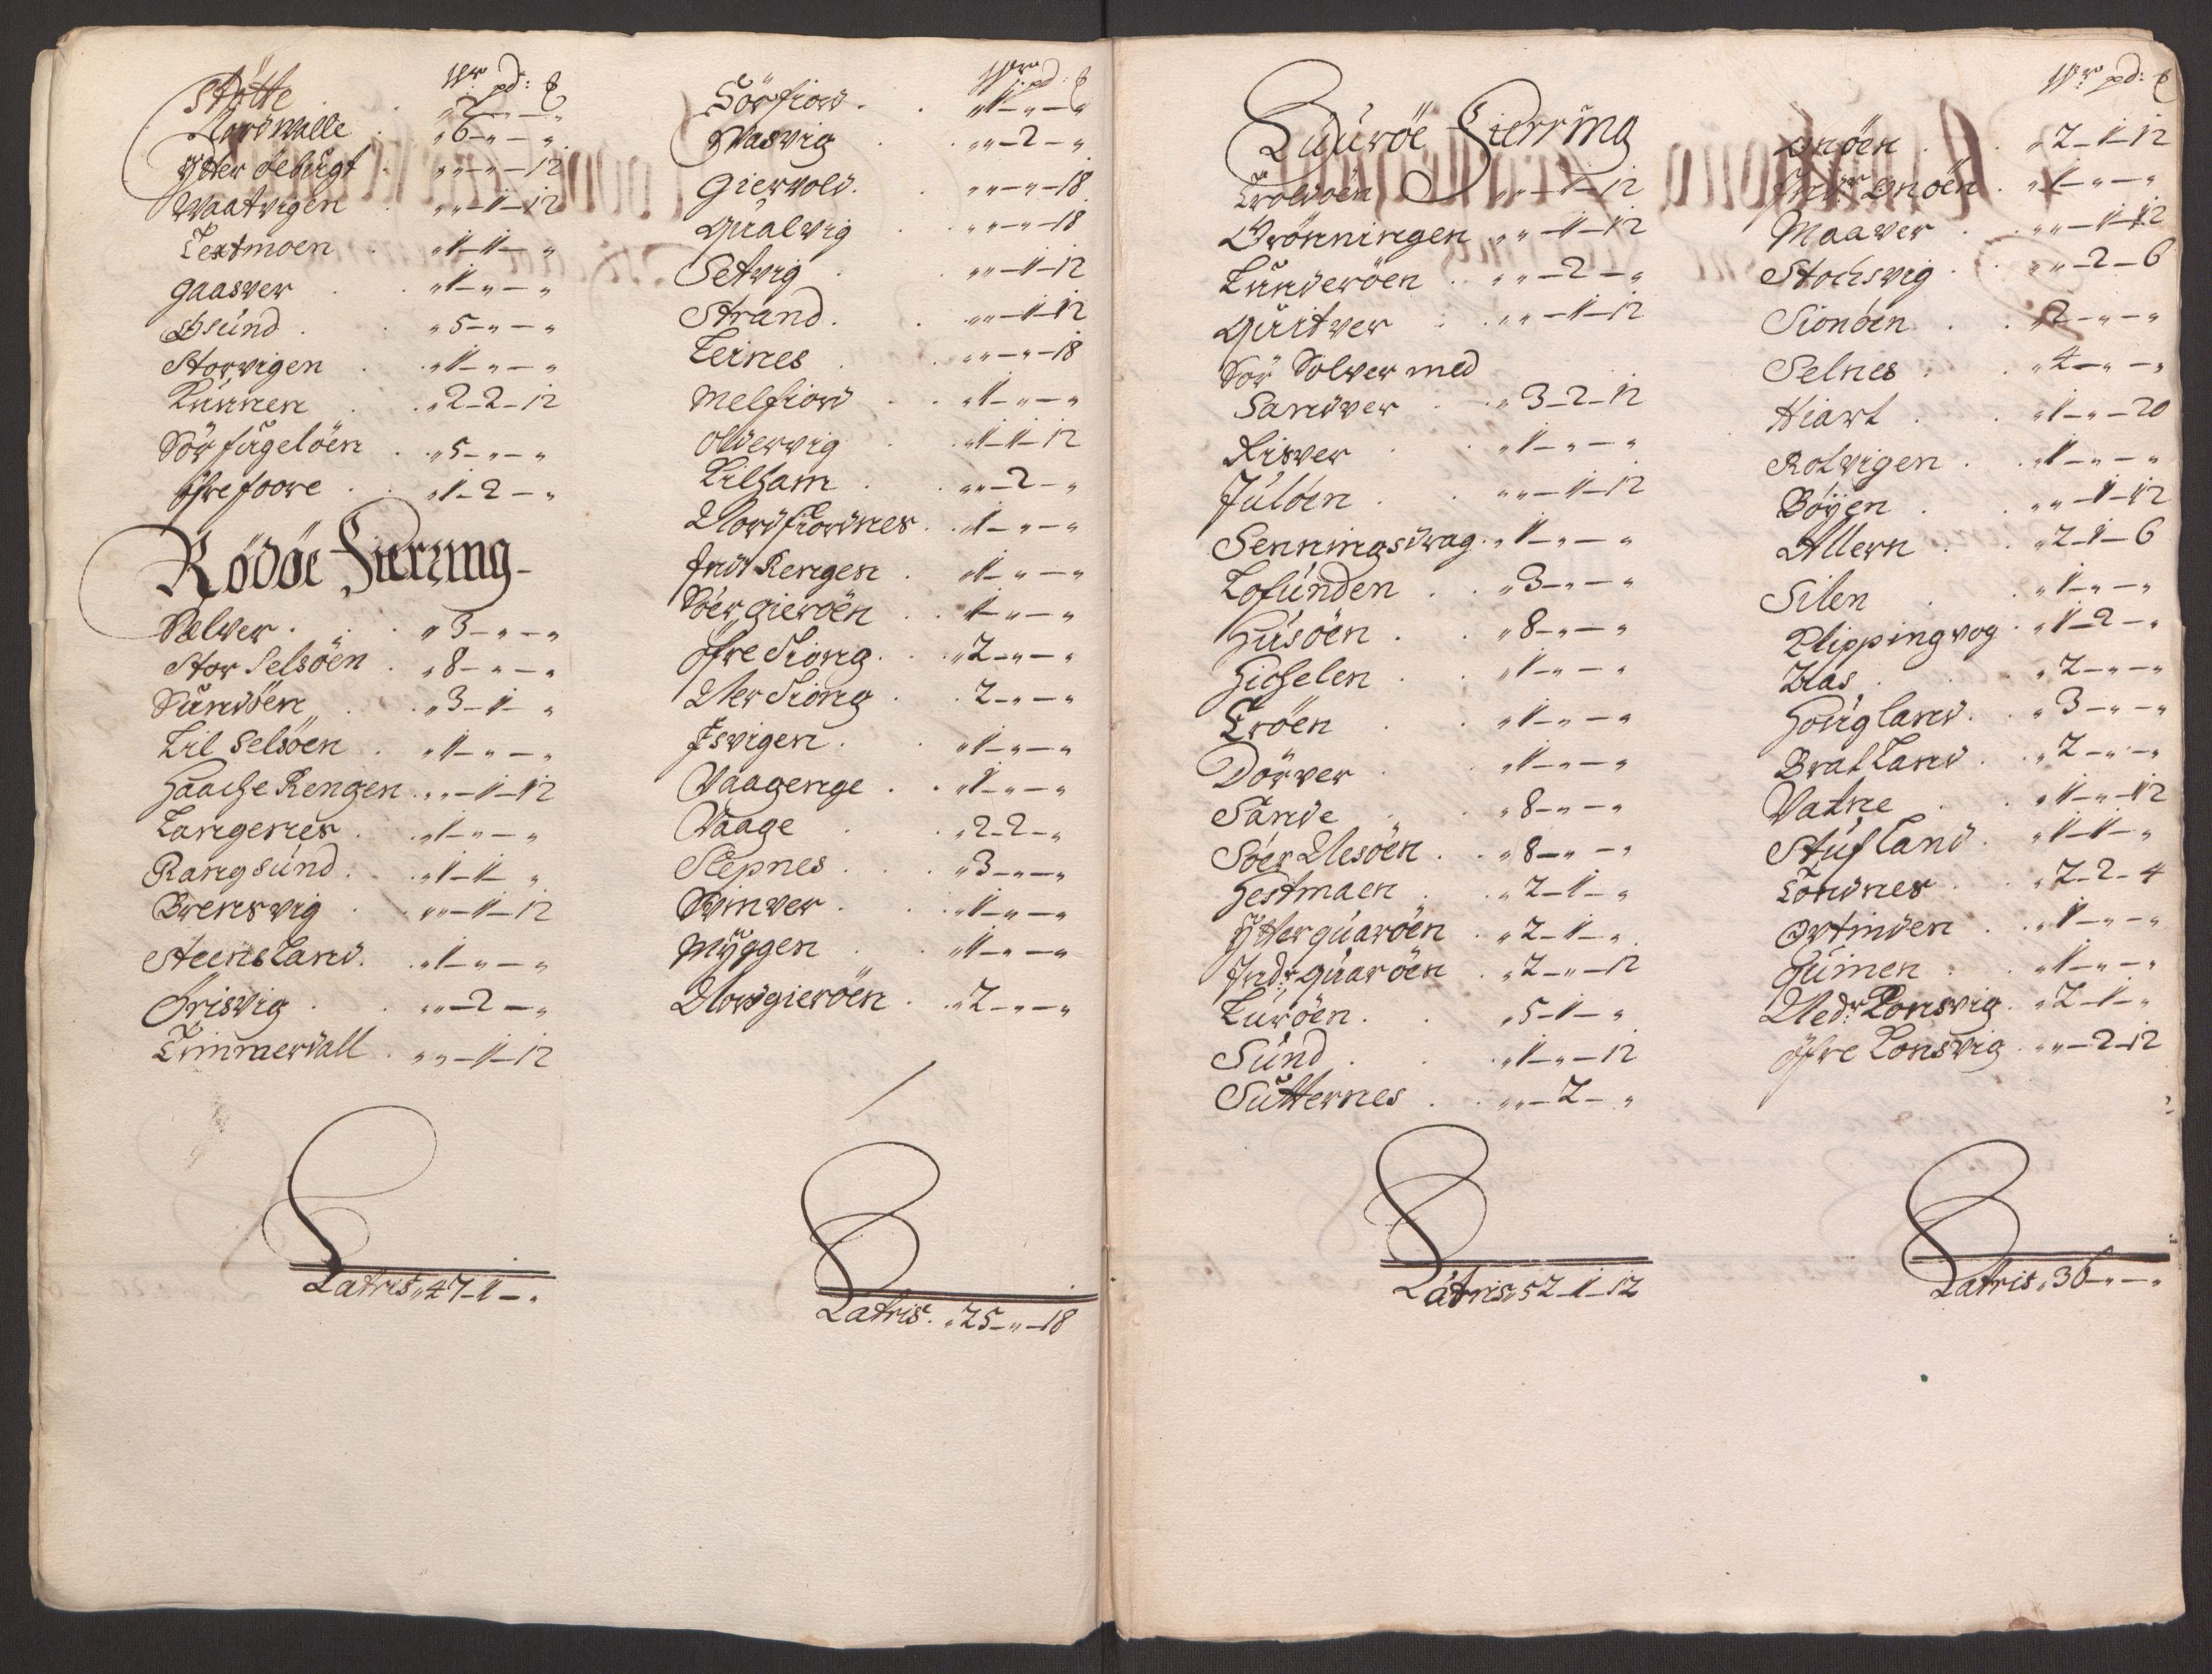 Wr pd: ℔
Støtte . . „ 2 - „ - „
Nordwalle . „ 6 - „ - „
Ytter debugt . „ „ - „ - 12
Waatvigen . „ „ - 1 - 12
Textmoen . „ 1 - 1 - „
Gaasver . „ 1 - „ - „
Øsund . . „ 5 - „ - „
Storvigen . „ 1 - „ - „
Kunnen . „ 2 - 2 - 12
Sör fugelöen . „ 5 - „ - „
Øfre foore . „ 1 - 2 - „
Rödöe Fierring
Selver . . „ 3 - „ - „
Stor Selsöen . „ 8 - „ - „
Sundöen . „ 3 - 1 - „
Lil Selsöen . „ 1 - „ - „
Haache Rengen . „ „ - 1 - 12
Langenes . „ 1 - „ - „
Rangsund . „ 1 - 1 - „
Brensvig . „ „ - 1 - 12
Steensland . „ 1 - „ - „
Grisvig . „ „ - 2 - „
Timmerdall . „ „ - 1 - 12
Latris „ 47 - 1 - „
Wr pd: ℔
Sörfiord . . „ 1 - „ - „
Wasvig . „ „ - 2 - „
Giervold . „ „ - „ - 18
Qualvig . „ „ - „ - 18
Setvig . „ „ - 1 - 12
Strand . „ „ - 1 - 12
Leines . „ „ - „ - 18
Melfiord . . „ 1 - „ - „
Oldervig . „ 1 - 1 - 12
Lilham . „ „ - 2 - „
Nordfiordnes . „ 1 - „ - „
Indr Rengen . „ 1 - „ - „
Söer gieröen . „ 1 - „ - „
Öfre Siong . „ 2 - „ - „
Ner Siong . . 2 - „ - „
Isvigen . „ 1 - „ - „
Vaagenge . . „ 1 - „ - „
Vaage . „ 2 - 2 - „
Slepnes . . „ 3 - „ - „
Svinver . „ 1 - „ - „
Myggen . „ 1 - „ - „
Nordgieröen . „ 2 - „ - „
Latris . „ 25 - „ - 18
Luröe Fierring
Troldöen „ „ - 1 - 12
Grönningen „ „ - 1 - 12
Lunderöen . „ „ - 2 - „
Quitver . „ „ - 1 - 12
Sör Solver med
Sandver . „ 3 - 2 - 12
Risver . „ 1 - „ - „
Julöen . „ „ - 1 - 12
Senningsdrag . „ 1 - „ - „
Lofunden . . „ 3 - „ - „
Husöen . . „ 8 - „ - „
Gichelen . „ 1 - „ - „
Eröen . „ 1 - „ - „
Dörver . „ 1 - „ - „
Sande . „ 8 - „ - „
Söer Nesöen . „ 8 - „ - „
Hestmaen . „ 2 - 1 - „
Ytterquaröen . „ 2 - 1 - „
Indr: quaröen . „ 2 - „ - 12
Luröen . . „ 5 - 1 - „
Sund . . „ 1 - „ - 12
Sutternes . „ „ - 2 - „
Latris „ 52 - 1 - 12
Wr pd: ℔
Onöen . . „ 2 - 1 - 12
Indr Onöen . „ 1 - „ - „
Maaver . „ „ - 1 - 12
Stochsvig . „ „ - 2 - 6
Sionöen . . 2 - „ - „
Selnes . . „ 4 - „ - „
Hiart . „ 1 - „ - 20
Rolvigen . „ 1 - „ - „
Böyen . „ „ - 1 - 12
Allern . „ 2 - 1 - 6
Silen . „ 1 - „ - „
Plippingvog . „ 1 - 2 - „
Aas . . „ 2 - „ - „
Hougland . „ 3 - „ - „
Bratland . „ 2 - „ - „
Vatne . „ 1 - „ - 12
Stufland . „ 1 - 1 - „
Tondnes . „ 2 - 2 - 4
Ortinden . „ 1 - „ - „
Quinen . „ 1 - „ - „
Nedr: Konsvig . „ 2 - 1 - „
Øfre Konsvig . „ „ - 2 - 12
Latris „ 36 - „ - „